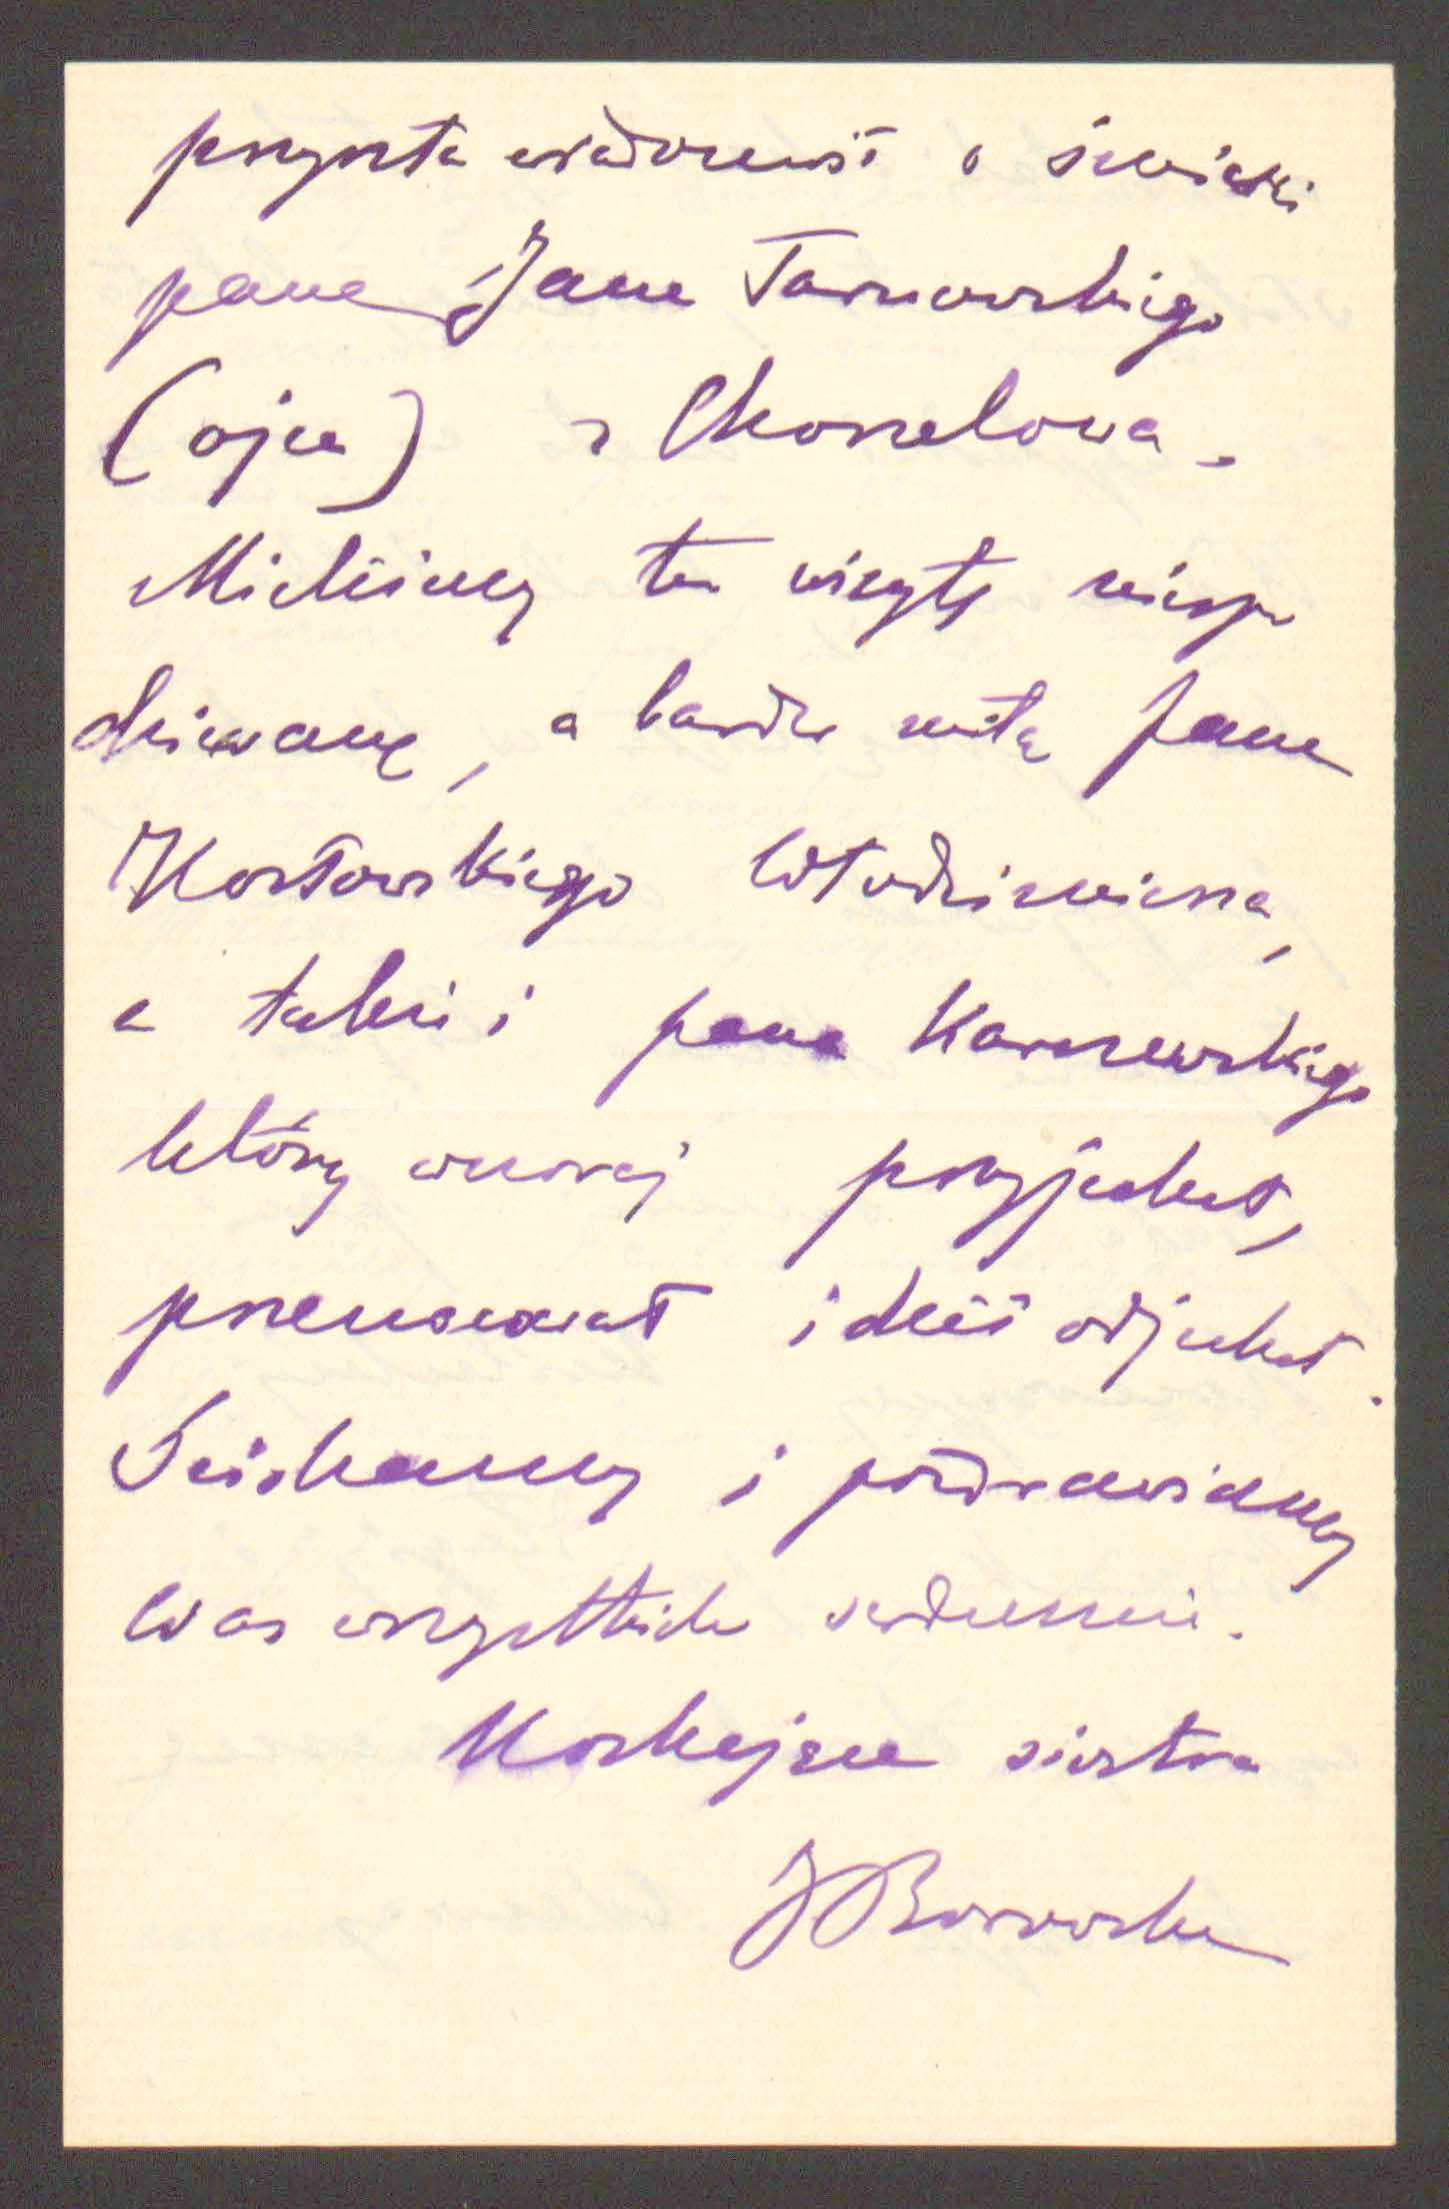 przyszła wiadomość o śmierci
pana Jana Tarnowskiego
(ojca) z Chorzelowa.
Mieliśmy tu wizytę niespo
dziewaną, a bardzo miłą pana
Kozłowskiego Włodzimierza,
a także i pana Karczewskiego
który wczoraj przyjechał,
przenocował i dziś odjechał.
Ściskamy i pozdrawiamy
Was wszystkich serdecznie.
Kochająca siostra
J Borowska